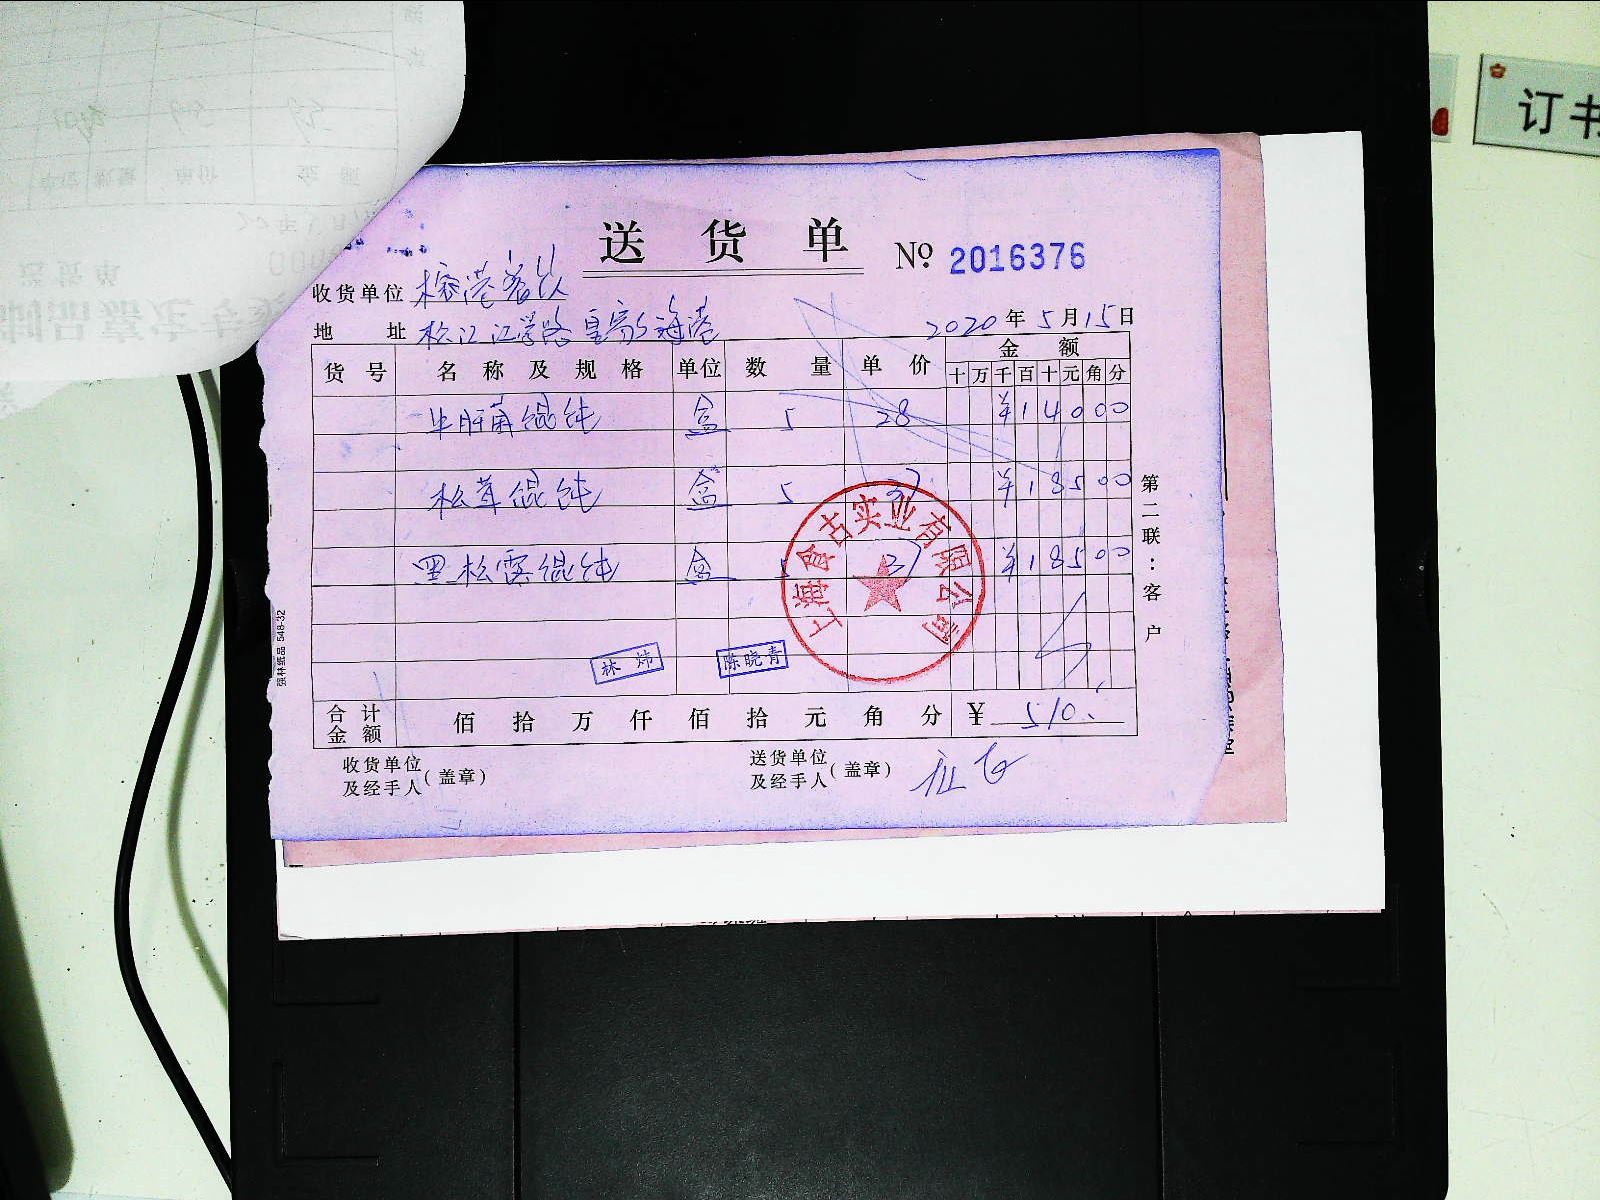 订书
送货单 № 2016376
收货单位 榕港餐饮
地址 松江江学路
2020年5月15日
货号 名称及规格 单位 数量 单价 金额
十万千百十元角分
牛肝菌馄饨 盒 5 28 ¥14000
松茸馄饨 盒 5 37 ¥18500
黑松露馄饨 盒 5 37 ¥18500
上海食古实业有限公司
林炜
陈晓青
合计金额 佰拾万仟佰拾元角分 ¥ 510.
收货单位及经手人(盖章)
送货单位及经手人(盖章)
第二联:客户
强林纸品 548-32